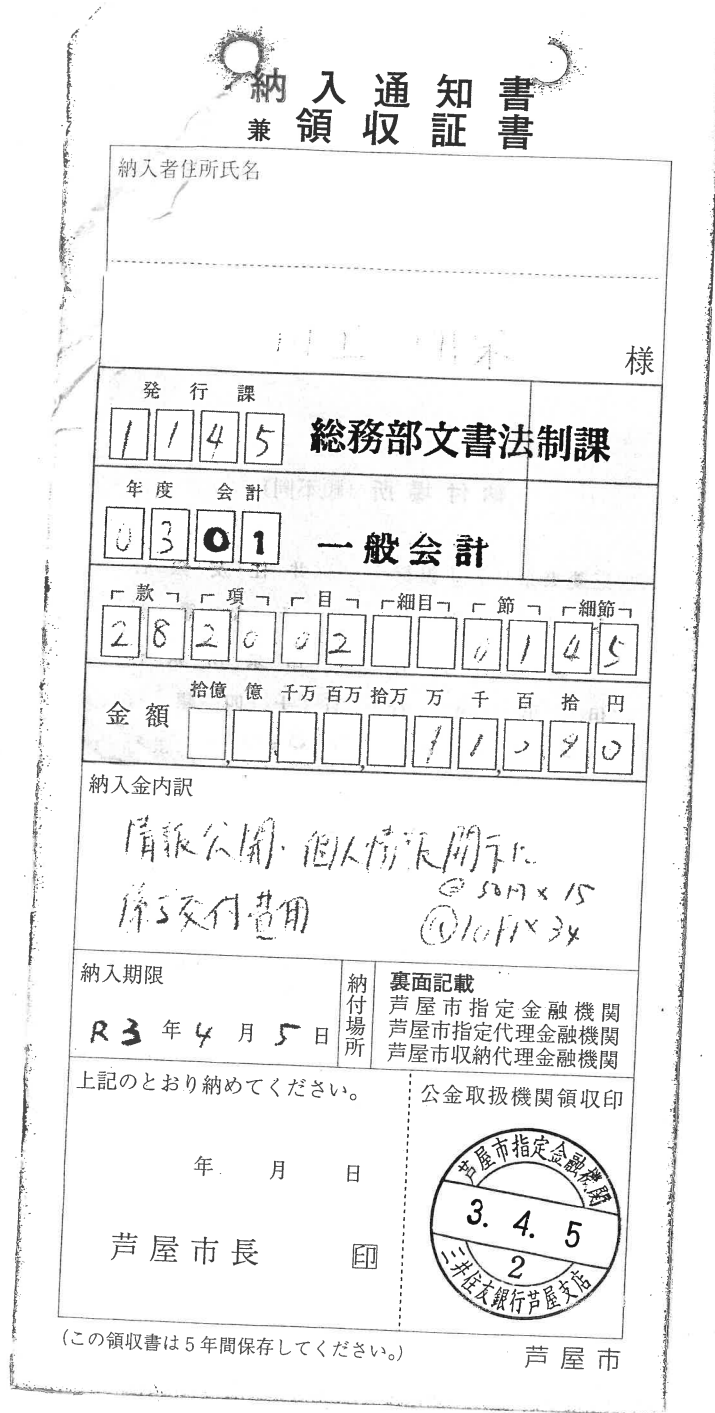 納入通知書
兼領収証書
納入者住所氏名
様
発行課
1145 総務部文書法制課
年度 会計
0301 一般会計
款 項 目 細目 節 細節
282002 0145
拾億 億 千万 百万 拾万 万 千 百 拾 円
金額
納入金内訳
情報公開・個人情報開示に
係る交付費用
@50円×15
@10円×34
納入期限
R3年4月5日
納付場所
裏面記載
芦屋市指定金融機関
芦屋市指定代理金融機関
芦屋市収納代理金融機関
上記のとおり納めてください。
年 月 日
芦屋市長 印
公金取扱機関領収印
芦屋市指定金融機関
3. 4. 5
2
三井住友銀行芦屋支店
(この領収書は5年間保存してください。)
芦屋市